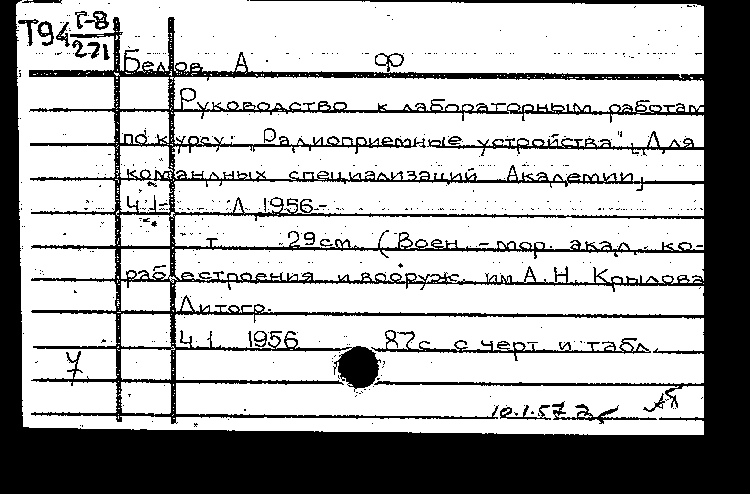 Т94 Г-8
271
Белов, А. Ф
Руководство к лабораторным работам
по курсу: "Радиоприемные устройства". [Для
командных специализаций Академии]
Ч.1- Л, 1956-
т. 29см. (Воен.-мор. акад. ко-
раблестроения и вооруж. им А.Н. Крылова
Литогр.
Ч.1. 1956 87с. с черт и табл.
7
10.1.57